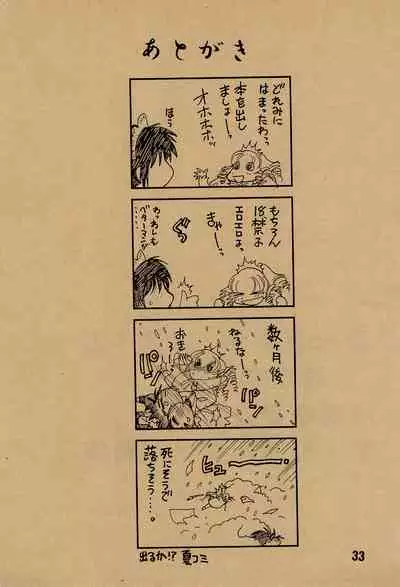 あとがき
どれみに
はまったわっ
本を出し
ましょー。
オホホホッ
ほう
もちろん
18禁よ
エロエロよ、
きゃーっ。
ぐっ
わっわしも
ベターマンが
数ヶ月後
ねるなーっ。
おきろー!
パン
パン
ヒュー。
死にそうで
落ちそう‥‥。
出るか!? 夏コミ
33